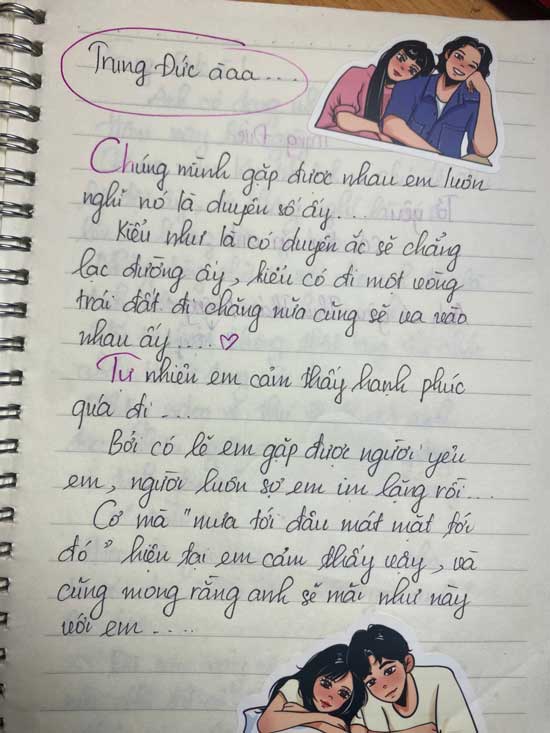 Trung Đức àaa...
Chúng mình gặp được nhau em luôn
nghĩ nó là duyên số ấy...
Kiểu như là có duyên ắc sẽ chẳng
lạc đường ấy, kiểu có đi một vòng
trái đất đi chăng nữa cũng sẽ va vào
nhau ấy....♡
Tự nhiên em cảm thấy hạnh phúc
quá đi...
Bởi có lẽ em gặp được người yêu
em, người luôn sợ em im lặng rồi...
Cơ mà "mưa tới đâu mát mặt tới
đó" hiện tại em cảm thấy vậy, và
cũng mong rằng anh sẽ mãi như này
với em....